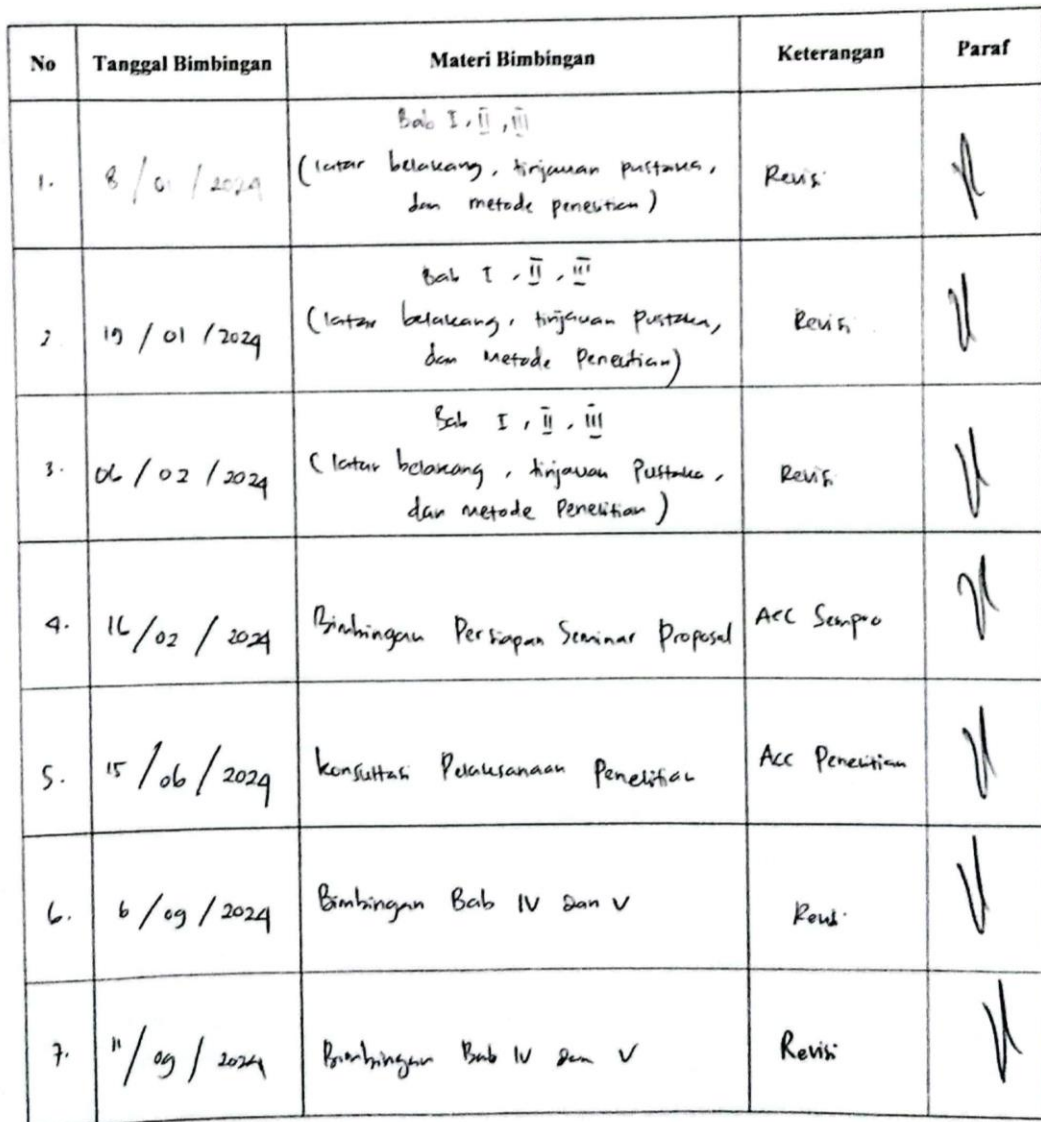 No Tanggal Bimbingan Materi Bimbingan Keterangan Paraf
Bab I, II, III
1. 8 / 01 / 2024 (latar belakang, tinjauan pustaka, Revisi
dan metode penelitian)
Bab I, II, III
2. 19 / 01 / 2024 (latar belakang, tinjauan Pustaka, Revisi
dan Metode Penelitian)
Bab I, II, III
3. 06 / 02 / 2024 (latar belakang, tinjauan Pustaka, Revisi
dan metode Penelitian)
4. 16 / 02 / 2024 Bimbingan Persiapan Seminar Proposal Acc Sempro
5. 15 / 06 / 2024 Konsultasi Pelaksanaan Penelitian Acc Penelitian
6. 6 / 09 / 2024 Bimbingan Bab IV dan V Revisi
7. 11 / 09 / 2024 Bimbingan Bab IV dan V Revisi